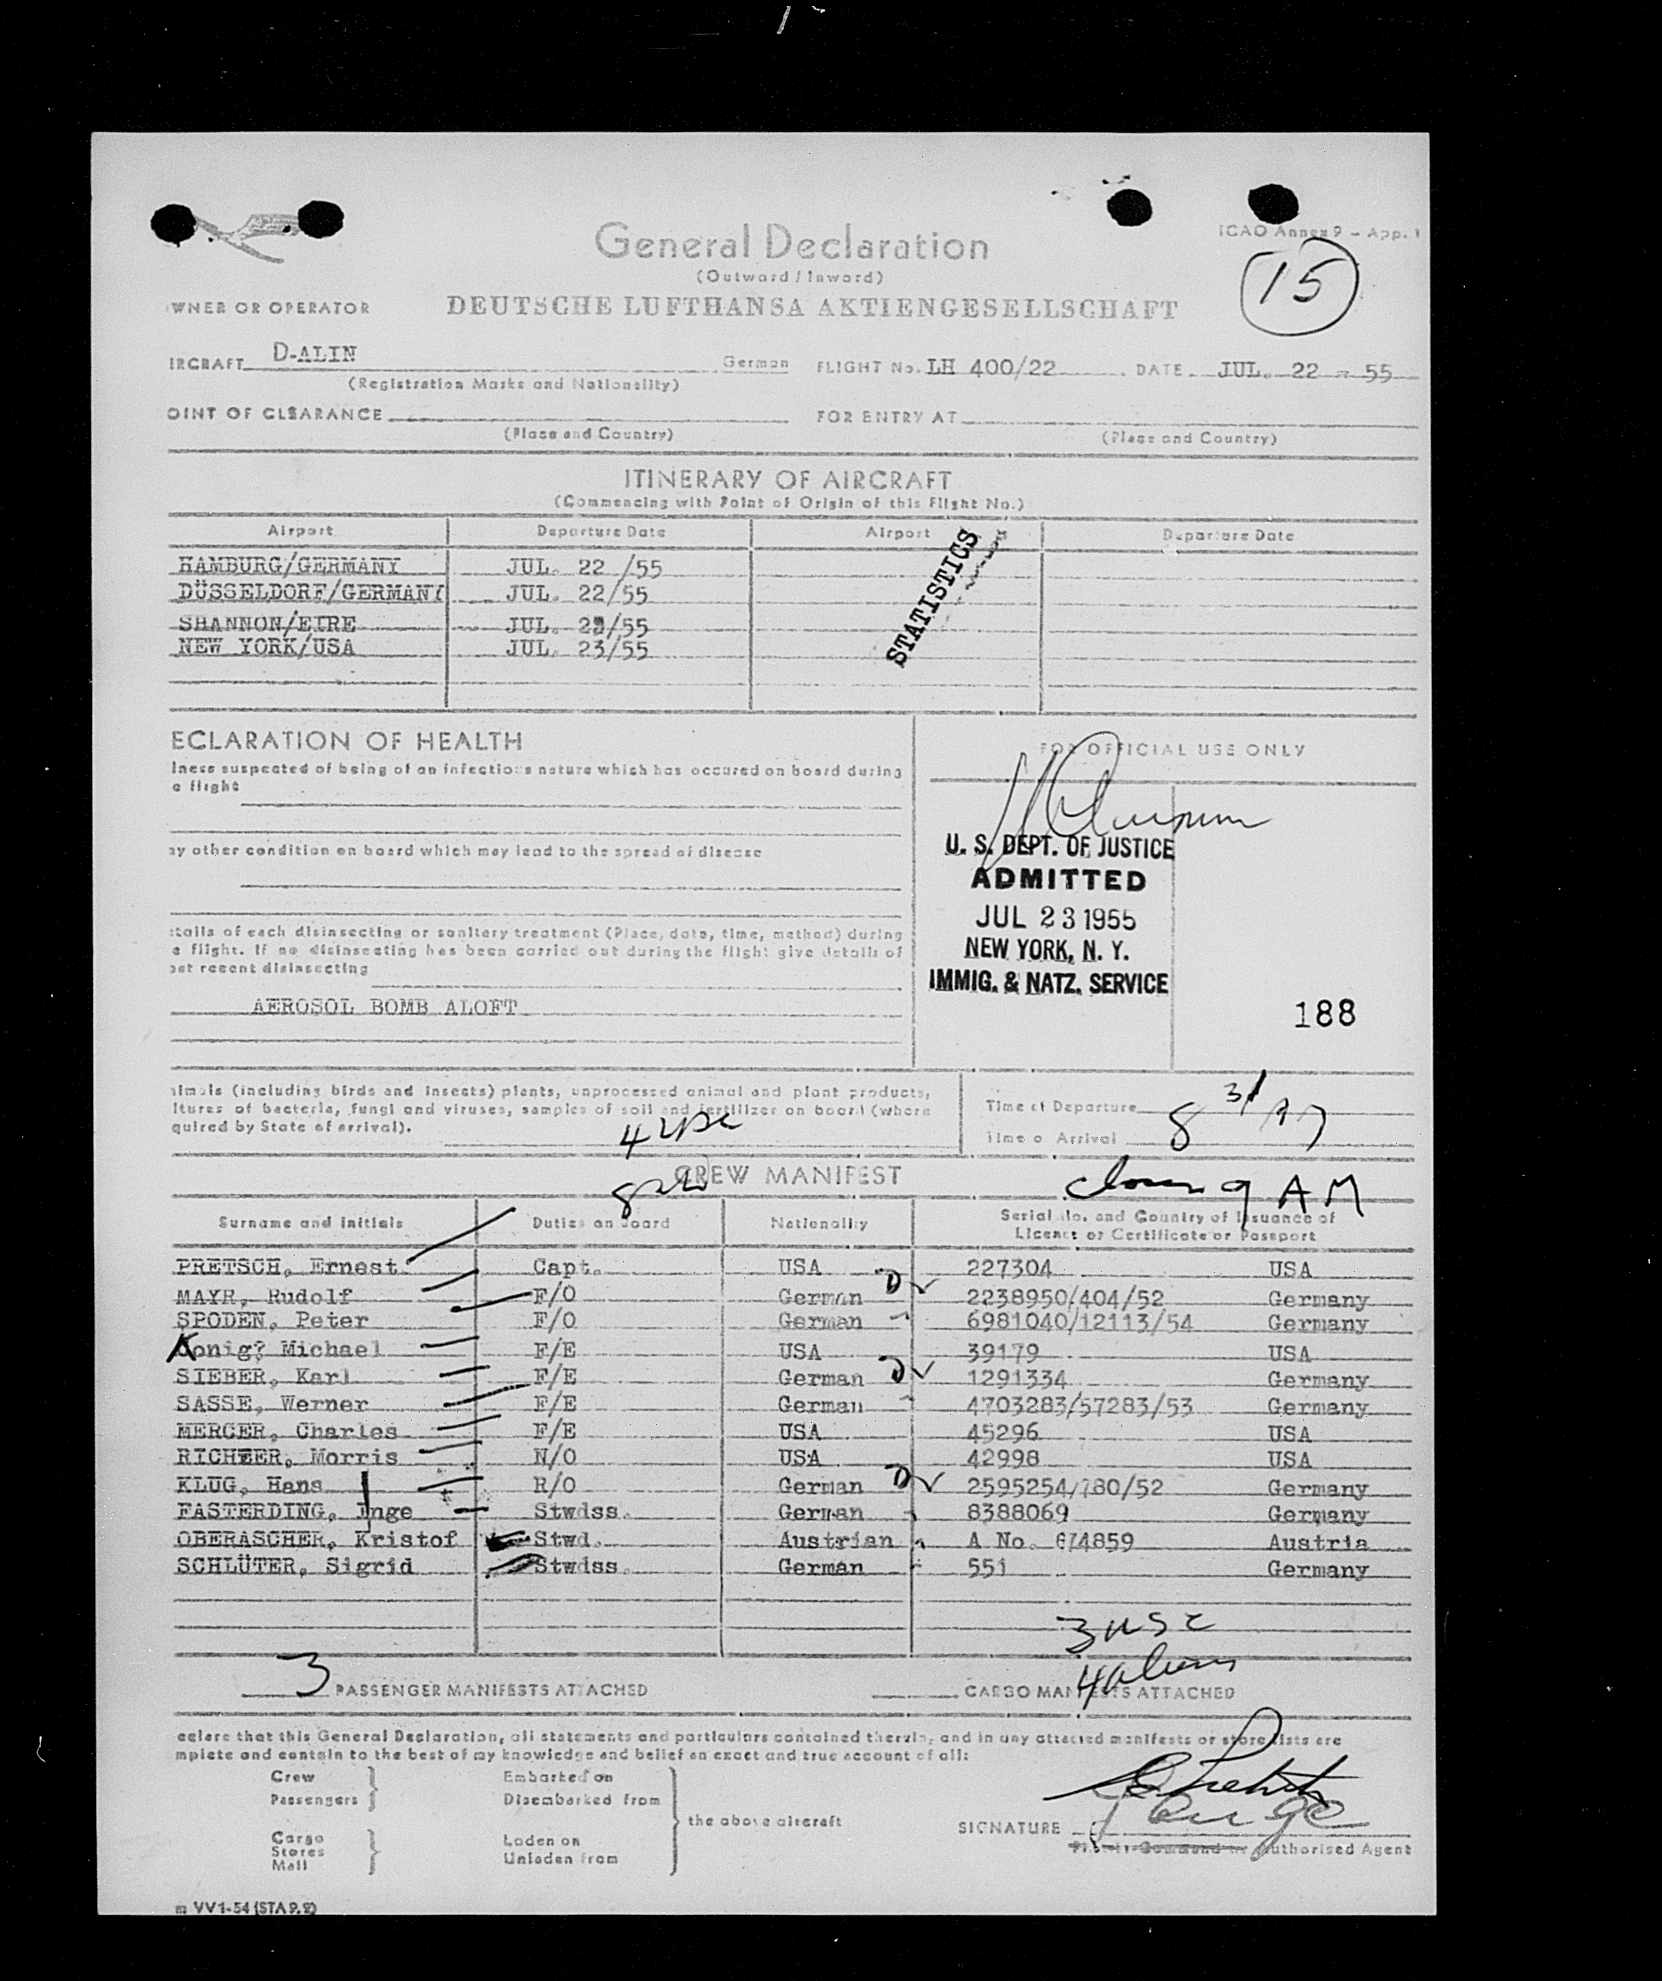 General Declaration
(Outward / Inward)
ICAO Annex 9 - App. 1
15
WNER OR OPERATOR DEUTSCHE LUFTHANSA AKTIENGESELLSCHAFT
IRCRAFT D-ALIN German FLIGHT No. LH 400/22 DATE JUL. 22 - 55
(Registration Marks and Nationality)
OINT OF CLEARANCE FOR ENTRY AT
(Place and Country) (Place and Country)
ITINERARY OF AIRCRAFT
(Commencing with Point of Origin of this Flight No.)
Airport Departure Date Airport Departure Date
HAMBURG/GERMANY JUL. 22 /55
DÜSSELDORF/GERMANY JUL. 22/55
SHANNON/EIRE JUL. /55
NEW YORK/USA JUL. 23/55
STATISTICS
ECLARATION OF HEALTH
FOR OFFICIAL USE ONLY
lness suspected of being of an infectious nature which has occured on board during
e flight
ny other condition on board which may lead to the spread of disease
etails of each disinsecting or sanitary treatment (Place, date, time, method) during
e flight. If no disinsecting has been carried out during the flight give details of
ost recent disinsecting
AEROSOL BOMB ALOFT
U. S. DEPT. OF JUSTICE
ADMITTED
JUL 23 1955
NEW YORK, N. Y.
IMMIG. & NATZ. SERVICE
188
nimals (including birds and insects) plants, unprocessed animal and plant products,
ltures of bacteria, fungi and viruses, samples of soil and fertilizer on board (where
quired by State of arrival).
Time of Departure
Time of Arrival 8 31
4 usc
CREW MANIFEST
9 AM
Surname and Initials Duties on Board Nationality Serial No. and Country of Issuance of
Licence or Certificate or Passport
PRETSCH, Ernest Capt. USA 227304 USA
MAYR, Rudolf F/O German 2238950/404/52 Germany
SPODEN, Peter F/O German 6981040/12113/54 Germany
Konig? Michael F/E USA 39179 USA
SIEBER, Karl F/E German 1291334 Germany
SASSE, Werner F/E German 4703283/57283/53 Germany
MERCER, Charles F/E USA 45296 USA
RICHTER, Morris N/O USA 42998 USA
KLUG, Hans R/O German 2595254/780/52 Germany
FASTERDING, Inge Stwdss. German 8388069 Germany
OBERASCHER, Kristof Stwd. Austrian A No. 674859 Austria
SCHLÜTER, Sigrid Stwdss. German 551 Germany
3 usc
4 aliens
3 PASSENGER MANIFESTS ATTACHED CARGO MANIFESTS ATTACHED
eclare that this General Declaration, all statements and particulars contained therein, and in any attached manifests or store lists are
mplete and contain to the best of my knowledge and belief an exact and true account of all:
Crew Embarked on
Passengers Disembarked from
the above aircraft
Cargo Laden on
Stores Unladen from
Mail
SIGNATURE
Pilot in Command or Authorised Agent
m VV1-54 (STA 9.2)